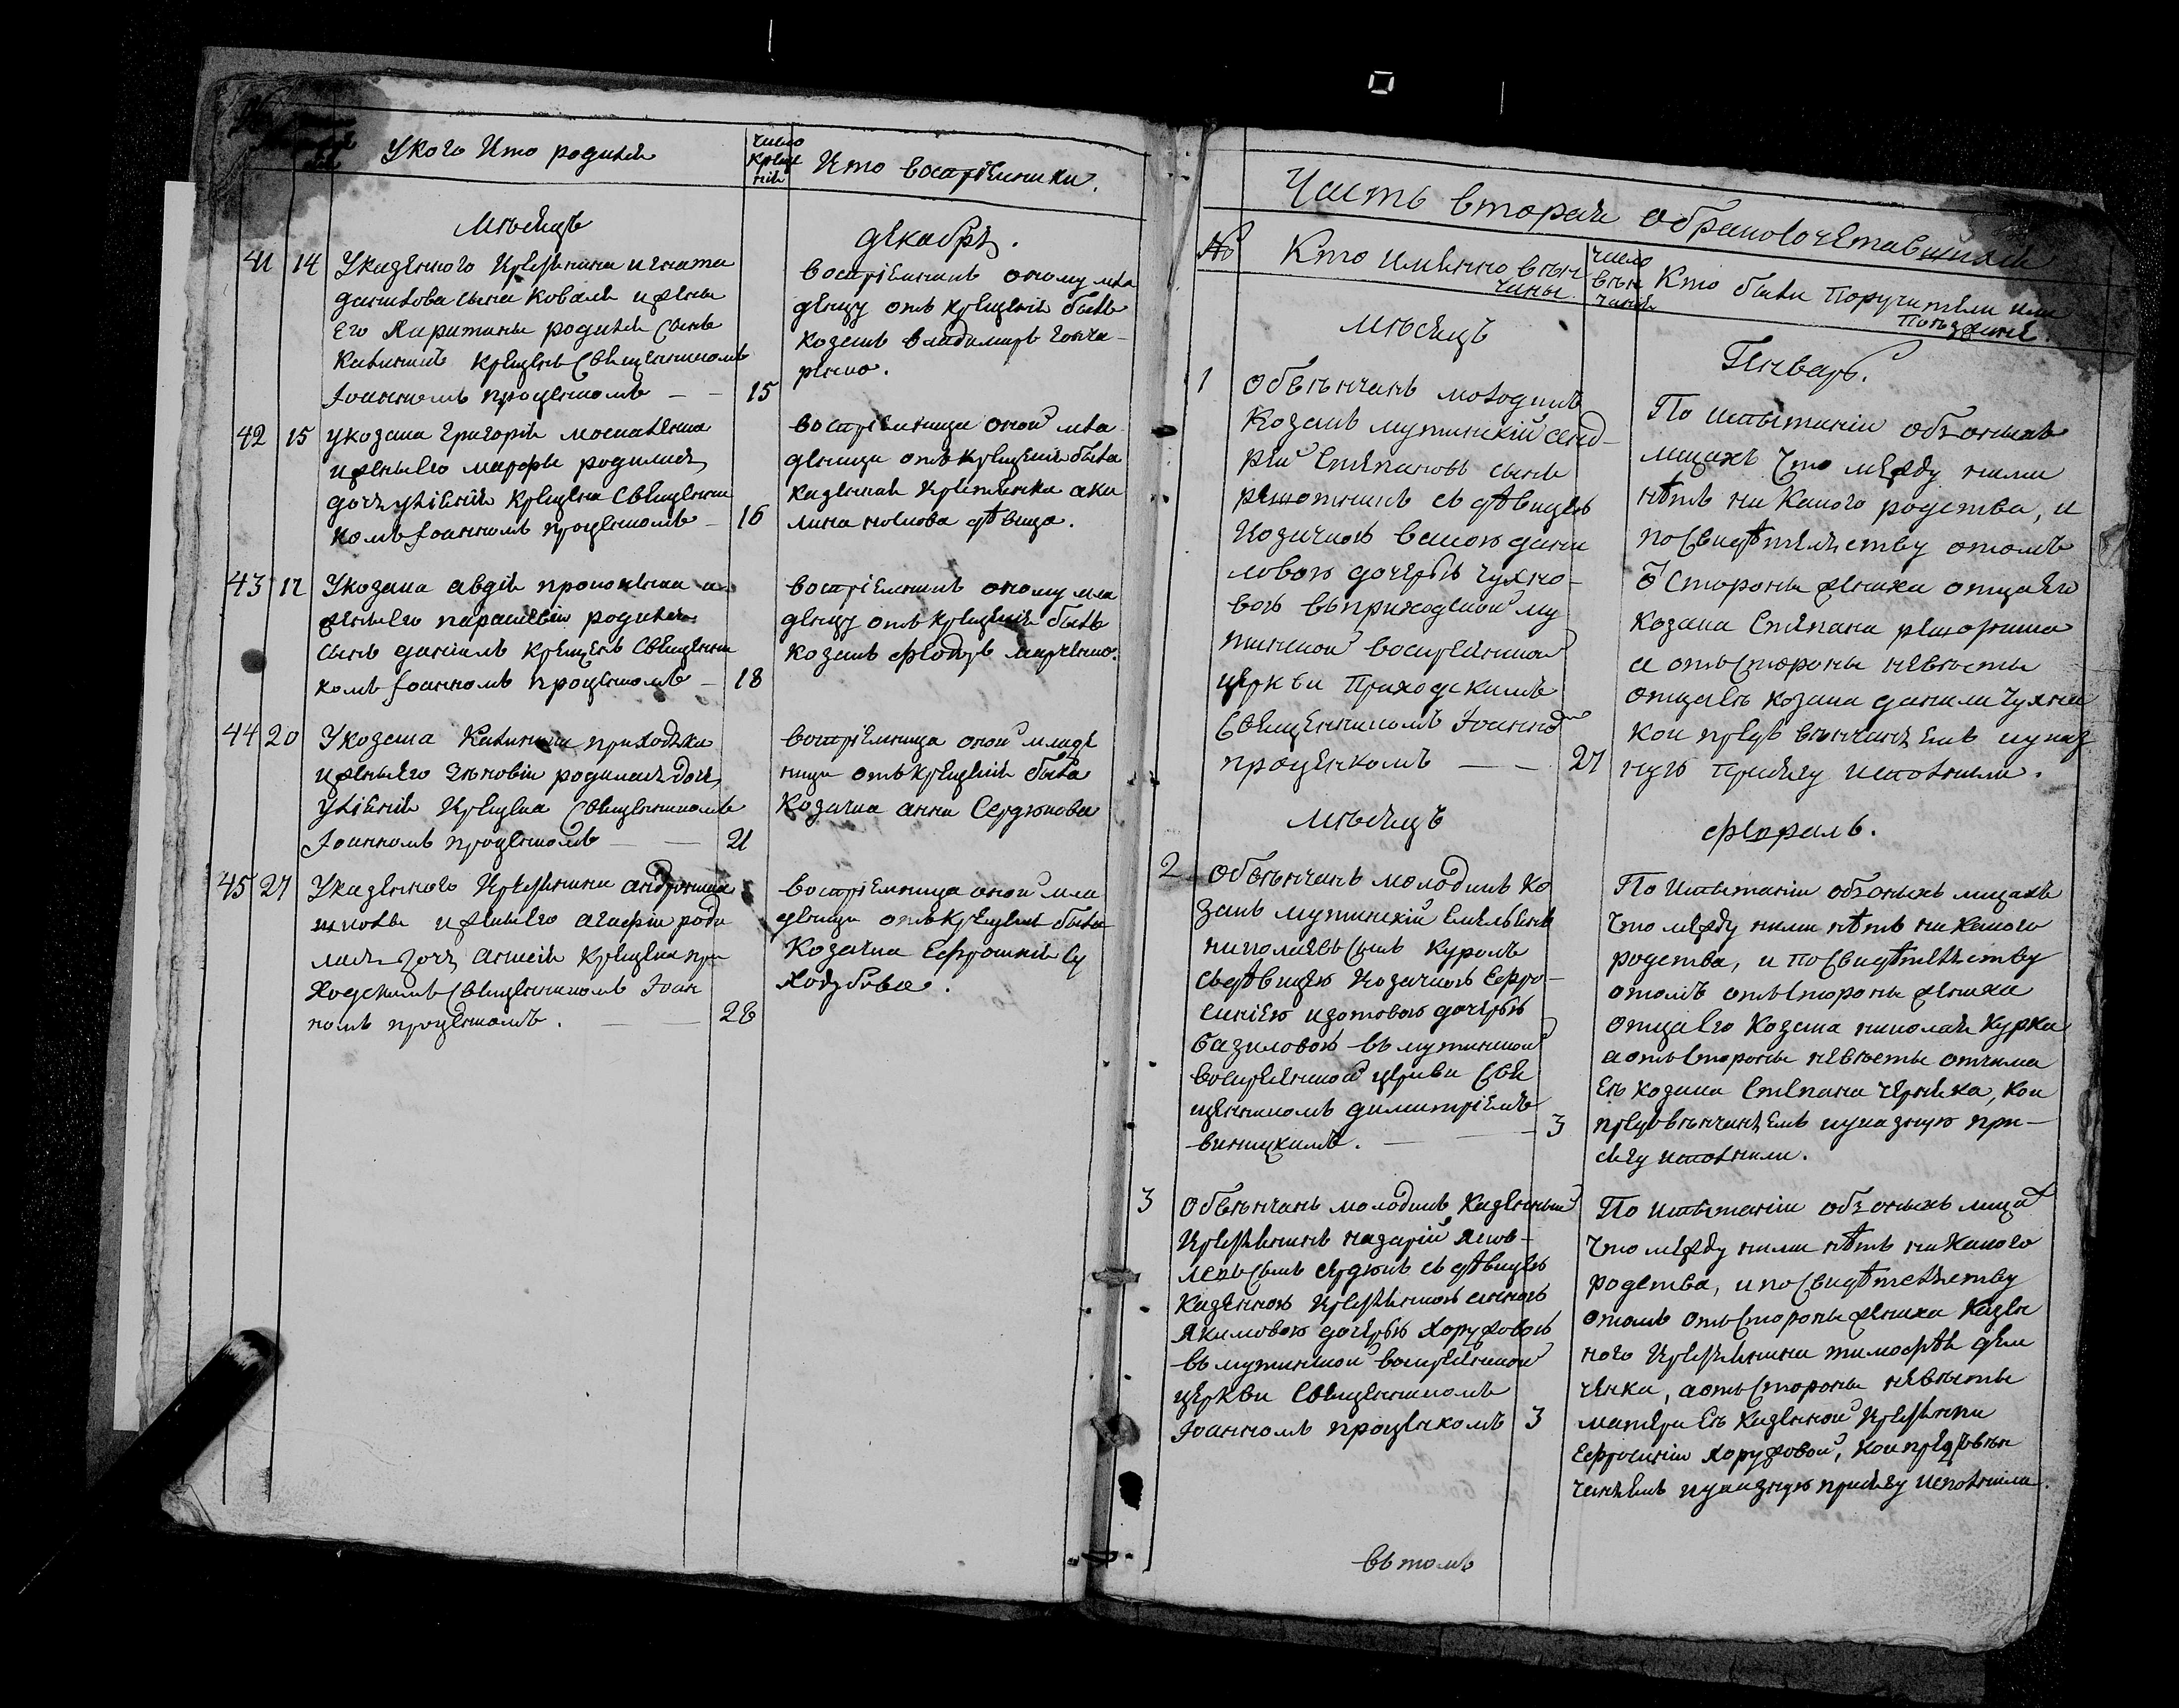 №
У кого кто родился
число
креще
нія
Кто воспріемники.
Мѣсяцъ
декабрь.
41 14 У казенного крестянина игната
данилова сына коваля и жены
его Харитины родился сынъ
Каленикъ крещенъ Священникомъ
Іоанномъ проценкомъ 15
воспріемникъ оному мла
денцу отъ крещенія былъ
козакъ владимиръ гонча-
ренко.
42 15 у козака григорія москаленка
и жены его марфы родилась
дочь уліянія крещена Священни
комъ Іоанномъ проценкомъ 16
воспріемница оной мла
деницы отъ крещенія была
казенная крестянка аку
лина дѣвица.
43 17 У козака авдія прокопенка и
жены его параскевіи родился
сынъ даніилъ крещенъ Священни
комъ Іоанномъ проценкомъ 18
воспріемникъ оному мла
денцу отъ крещенія былъ
козакъ феодоръ марченко.
44 20 У козака Каленика приходька
и жены его зѣновіи родилась дочь
уліянія крещена Священникомъ
Іоанномъ проценкомъ 21
воспріемница оной младе
ницы отъ крещенія была
козачка анна Сердюкова
45 27 У казенного крестянина андроника
и жены его агафіи роди
лась дочь анисія крещена при
ходскимъ Священникомъ Іоан
номъ проценкомъ. 28
воспріемница оной мла
деницы отъ крещенія была
козачка Ефросинія Су
ходубова.
Часть вторая о браносочетавшихся
№
Кто именно вѣн
чаны
число
вѣн
чанія
Кто были поручители или
поѣзжане
Мѣсяцъ
Генварь.
1 Обвѣнчанъ молодикъ
Козакъ мутинскій
рей Степановъ сынъ
съ дѣвицею
козачкою дани
ловою дочерью чухно-
вою въ приходской му
тинской воскресенской
церкви приходскимъ
Священникомъ Іоанномъ
проценкомъ 27
По испытаніи объ оныхъ
лицахъ что между ними
нѣтъ никакого родства, и
по свидѣтельству о томъ
отъ стороны жениха отца его
козака Степана
а отъ стороны невѣсты
отца ея козака данила чухна
кои предъ вѣнчаніемъ указ
ную присягу исполнили.
Мѣсяцъ
февраль.
2 Обвѣнчанъ молодикъ ко
закъ мутинскій Емельянъ
николаевъ сынъ курокъ
съ дѣвицею козачкою Ефро-
синіею изотовою дочерью
базиловою въ мутинской
воскресенской церкви Свя
щенникомъ димитріемъ
виницкимъ. 3
По испытаніи объ оныхъ лицахъ
что между ними нѣтъ никакого
родства, и по свидѣтельству
о томъ отъ стороны жениха
отца его козака николая курка
а отъ стороны невѣсты отчима
ея козака Степана черняка, кои
предъ вѣнчаніемъ указную при-
сягу исполнили.
3 Обвѣнчанъ молодикъ казенный
крестянинъ назарій яков-
левъ сынъ сердюкъ съ дѣвицею
казенною крестянкою анною
якимовою дочерью Хоружовою
въ мутинской воскресенской
церкви Священникомъ
Іоанномъ проценкомъ 3
По испытаніи объ оныхъ лицахъ
что между ними нѣтъ никакого
родства, и по свидѣтельству
о томъ отъ стороны жениха казен
ного крестянина тимофѣя дем
ченка, а отъ стороны невѣсты
матери ея казенной крестянки
Ефросиніи Хоружовой, кои предъ вѣн
чаніемъ указную присягу исполнили.
въ томъ